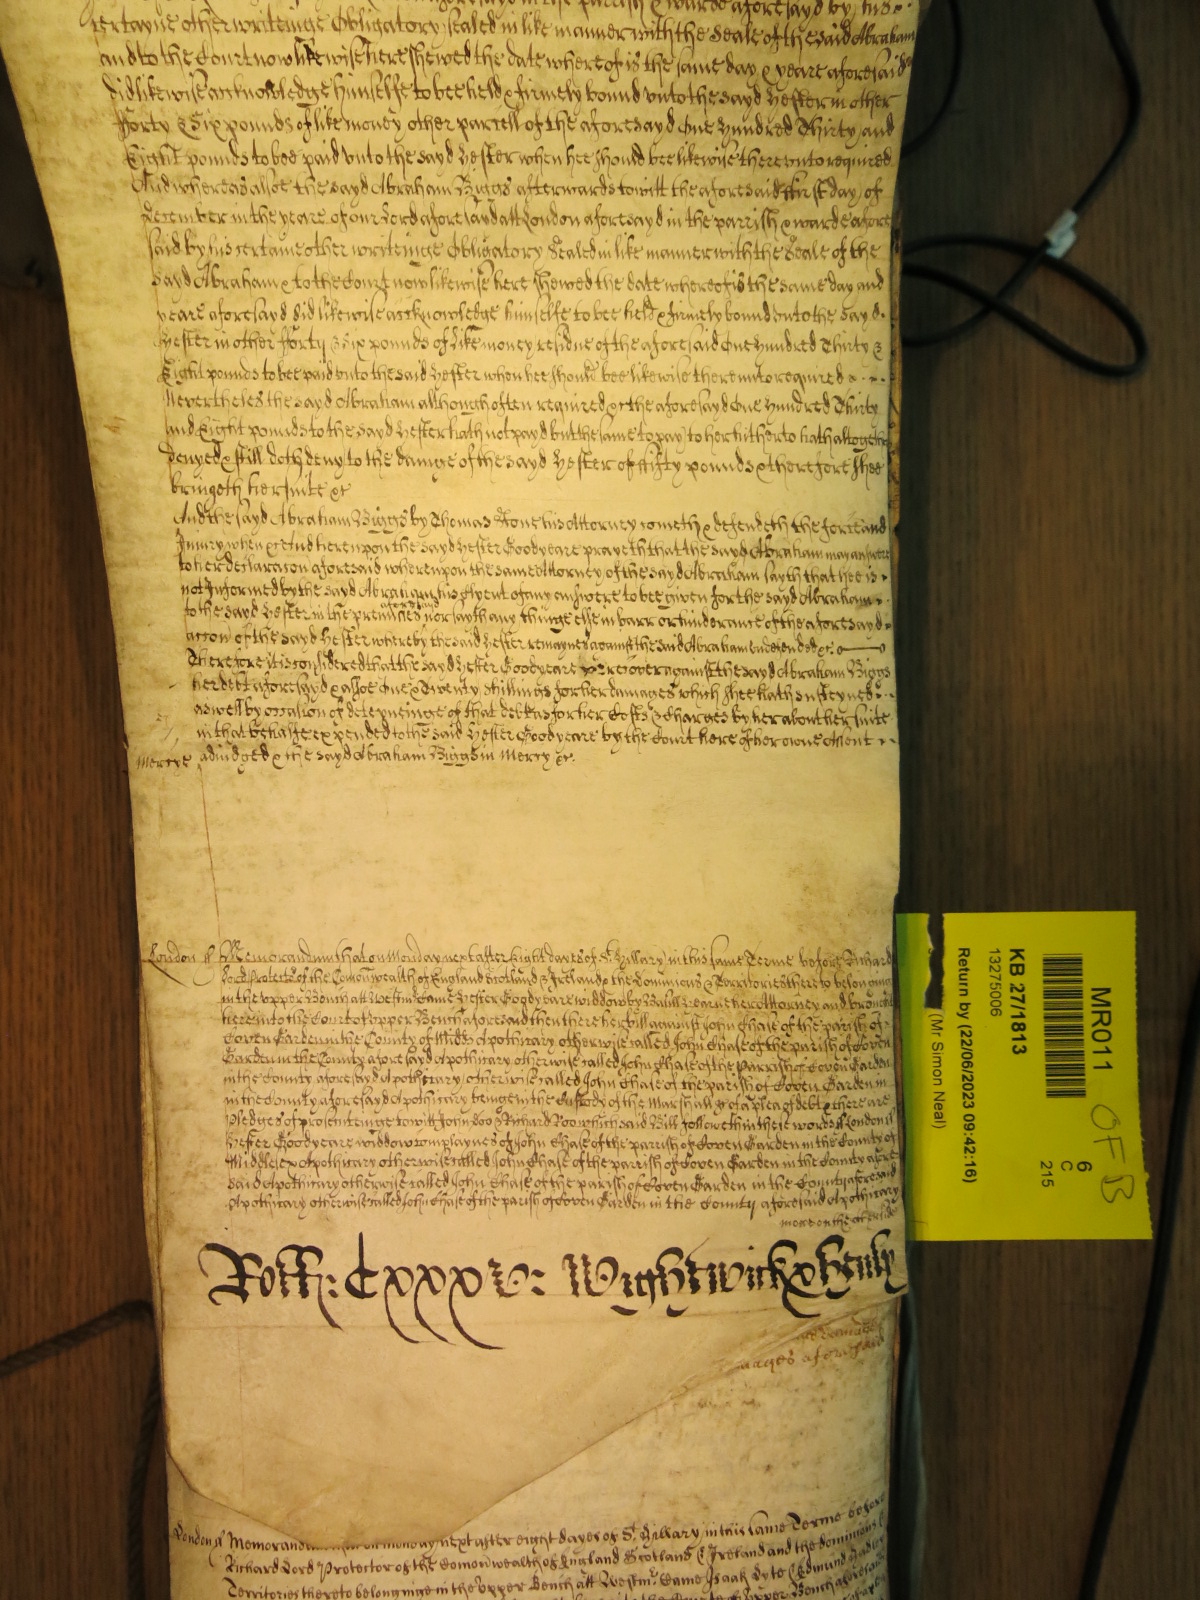 in the parrish & warde aforesayd by his
certayne other writeinge Obligatory sealed in like manner with the Seale of the said Abraham
and to the Court now likewise here shewed the date whereof is the same day & yeare aforesaid
did likewise acknowledge himselfe to bee held & firmely bound unto the sayd Hester in other
fforty & Six pounds of like money other parcell of the aforesayd One Hundred Thirty and
Eight pounds to bee paid unto the sayd Hester when hee should bee likewise thereunto required
And whereas alsoe the sayd Abraham Biggs afterwards to witt the aforesaid first day of
December in the yeare of our Lord aforesayd att London aforesayd in the parrish & warde afore
said by his certaine other writeinge Obligatory Sealed in like manner with the Seale of the
sayd Abraham & to the Court now likewise here shewed the date whereof is the same day and
yeare aforesayd did likewise acknowledge himselfe to bee held & firmely bound unto the sayd
Hester in other fforty & Six pounds of Like money residue of the aforesaid One Hundred Thirty &
Eight pounds to bee paid unto the said Hester when hee should bee likewise thereunto required
Nevertheles the sayd Abraham although often required &c the aforesayd One Hundred Thirty
and Eight pounds to the sayd Hester hath not payd but the same to pay to her hitherto hath altogether
denyed & still doth deny to the damge of the sayd Hester of ffifty pounds & therefore shee
bringeth her suite &c
And the sayd Abraham Biggs by Thomas Stone his Attorney cometh & defendeth the force and
Injury when &c And hereupon the sayd Hester Goodyeare prayeth that the sayd Abraham may answere
to her declaracon aforesaid whereupon the same Attorney of the sayd Abraham sayth that hee is
not Informed by the sayd Abraham his Clyent of any answere to bee given for the sayd Abraham
to the sayd Hester in the premises aforesaid nor sayth any thinge else in barr or hinderance of the aforesayd
accon of the sayd Hester whereby the said Hester remaynes against the said Abraham undefended &c
Therefore it is considered that the sayd Hester Goodyeare recover against the sayd Abraham Biggs
her debt aforesayd & alsoe One & Twenty shillings for her damages which shee hath susteyned
aswell by occasion of deteyneinge of that debt as for her Costs & Charges by her about her suite
in that behalfe expended to the said Hester Goodyeare by the Court here of her owne Assent
Mercye adiudged & the sayd Abraham Biggs in Mercy &c.
London ss Memorandum that on Monday next after Eight dayes of St. Hillary in this same Terme before Richard
Lord Protector of the Comonwealth of England Scotland & Ireland & the Dominions & Territories thereto belonginge
in the Upper Bench att Westmr Came Hester Goodyeare widdow by Attorney and brought
here into the Court of Upper Bench aforesaid then there her bill against John Chase of the parish of
Coven Garden in the County of Midds Apothicary otherwise called John Chase of the parish of Coven
Garden in the County aforesayd Apothicary otherwise called John Chase of the Parrish of Coven Garden
in the County aforesaid Apothicary otherwise called John Chase of the parish of Coven Garden in
in the County aforesayd Apothicary being in the Custody of the Marshall &c of a plea of debt & there are
Pledges of prosecuteinge to witt John Doo & Richard Roo which said Bill followeth in these words ss London ss
Hester Goodyeare widdow complaynes of John Chase of the parish of Coven Garden in the County of
Middlesex Apothicary otherwise called John Chase of the parrish of Coven Garden in the County afore
said Apothicary otherwise called John Chase of the parish of Coven Garden in the County aforesaid
Apothicary otherwise called John Chase of the parish of Coven Garden in the County aforesaid Apothicary
more on the other side
Roll: Cxxxv: Wightwick & Henly
damages aforesaid
London ss Memorandum on Monday next after eight dayes of St. Hillary in this same Terme before
Richard Lord Protector of the Comonwealth of England Scotland & Ireland and the dominions &
Territories thereto belonginge in the Upper Bench att Westmr. Came Isaak Lyte Edmund
MR011
OFB
6
C
215
KB 27/1813
13275006
Return by (22/06/2023 09:42:16)
(Mr Simon Neal)